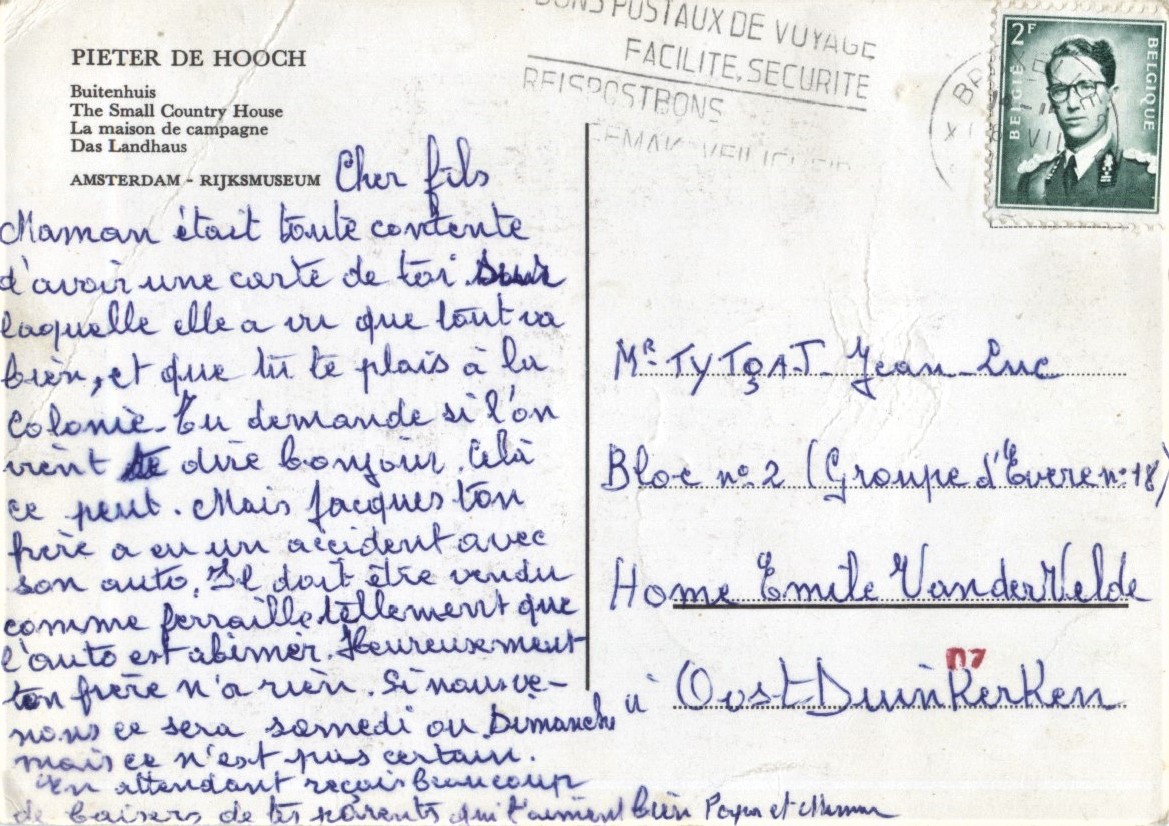 PIETER DE HOOCH
Buitenhuis
The Small Country House
La maison de campagne
Das Landhaus
AMSTERDAM - RIJKSMUSEUM
Cher fils
Maman était toute contente
d'avoir une carte de toi. Sur
laquelle elle a vu que tout va
bien, et que tu te plais à la
Colonie. Tu demande si l'on
vient te dire bonjour. Celà
ce peut. Mais Jacques ton
frère a eu un accident avec
son auto. Il doit être vendu
comme ferraille tellement que
l'auto est abimèr. Heureusement
ton frère n'a rien. Si nous ve-
nons ce sera samedi ou Dimanche
mais ce n'est pas certain.
En attendant reçois beaucoup
de baisers de tes parents qui t'aiment bien Papa et Maman
BONS POSTAUX DE VOYAGE
FACILITE, SECURITE
REISPOSTBONS
GEMAK, VEILIGHEID
2F
BELGIË
BELGIQUE
Mr TYTGAT Jean-Luc
Bloc n° 2 (Groupe d'Evere n° 18)
Home Emile VanderVelde
à OostDuinKerKen